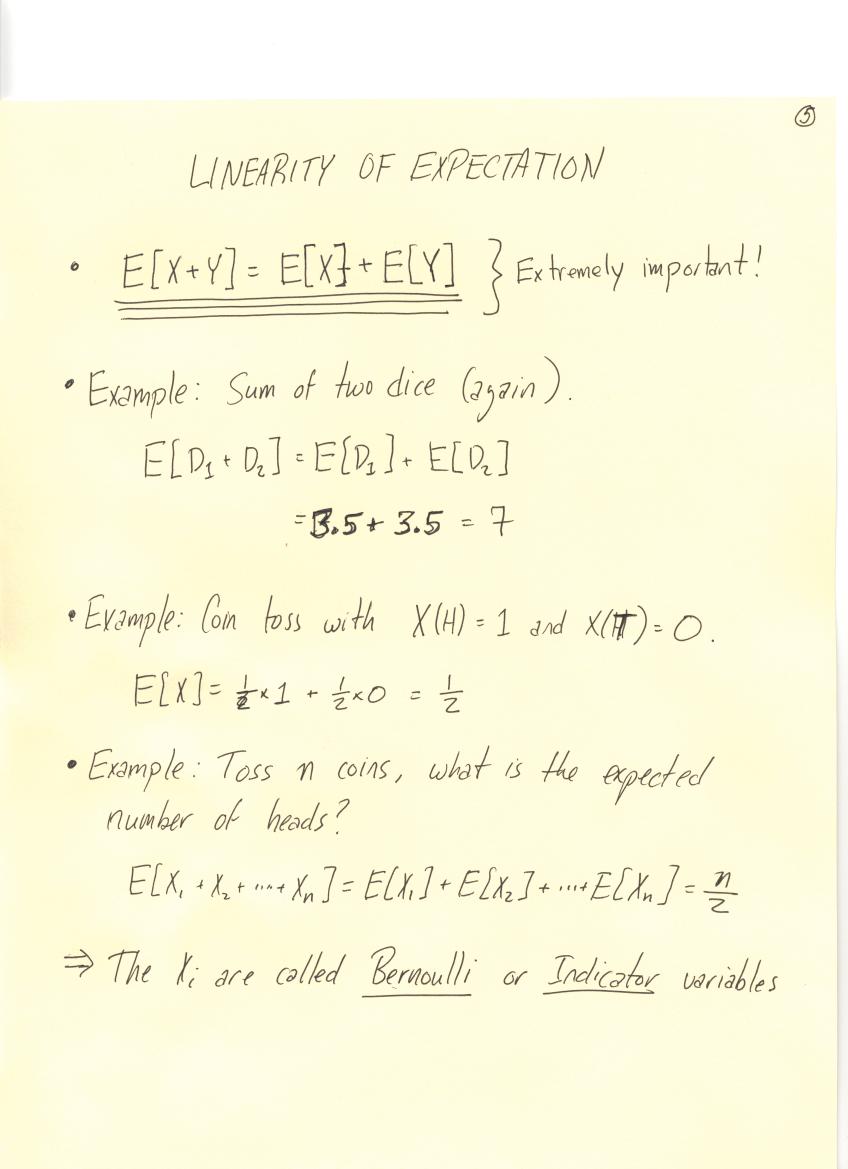 ⑤
LINEARITY OF EXPECTATION
• E[X+Y] = E[X] + E[Y] } Extremely important!
• Example: Sum of two dice (again).
E[D₁ + D₂] = E[D₁] + E[D₂]
= 3.5 + 3.5 = 7
• Example: Coin toss with X(H) = 1 and X(T) = 0.
E[X] = ½ × 1 + ½ × 0 = ½
• Example: Toss n coins, what is the expected
number of heads?
E[X₁ + X₂ + ... + Xₙ] = E[X₁] + E[X₂] + ... + E[Xₙ] = n/2
⇒ The Xᵢ are called Bernoulli or Indicator variables